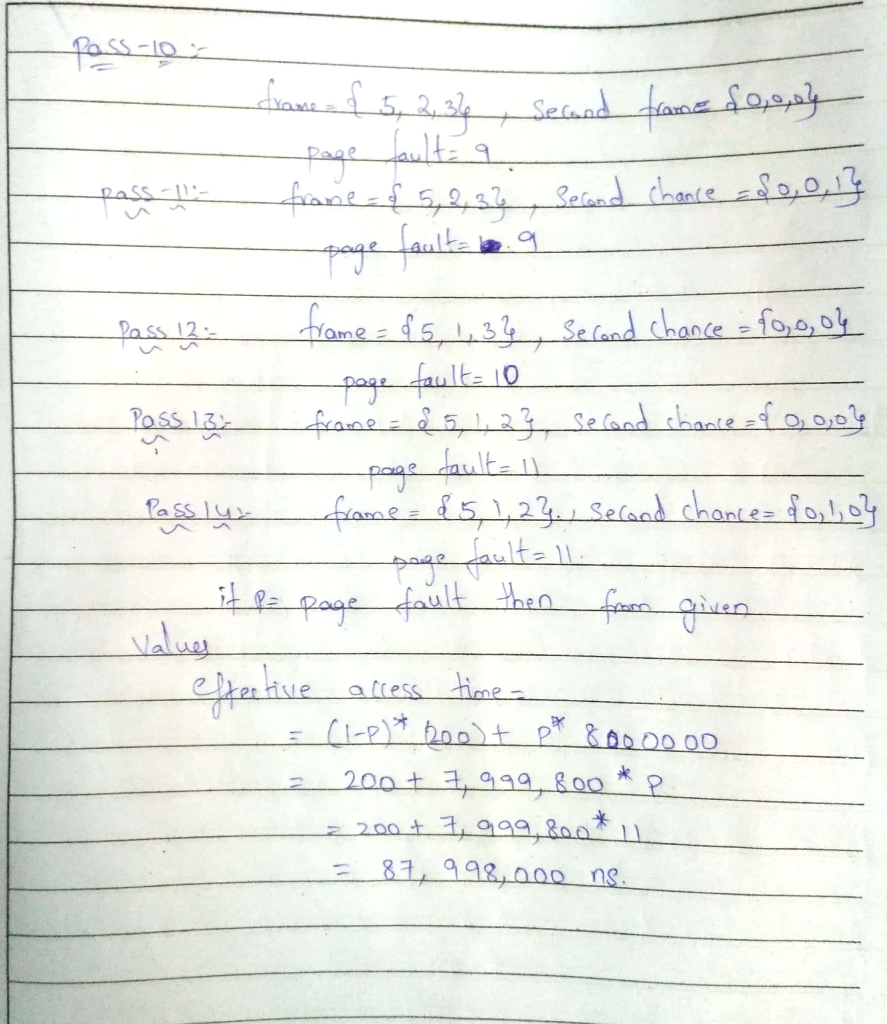 Pass-10 :-
frame = { 5, 2, 3} , Second frame {0,0,0}
page fault = 9
pass-11:- frame = { 5, 2, 3} , Second chance = {0,0,1}
page fault = 9
Pass 12:- frame = {5, 1, 3} , Second chance = {0,0,0}
page fault = 10
Pass 13:- frame = {5, 1, 2}, Second chance = {0,0,0}
page fault = 11
Pass 14:- frame = {5, 1, 2}., Second chance = {0,1,0}
page fault = 11.
if P= page fault then from given
values
effective access time =
= (1-P)* (200) + P* 8000000
= 200 + 7,999,800 * P
= 200 + 7,999,800 * 11
= 87,998,000 ns.